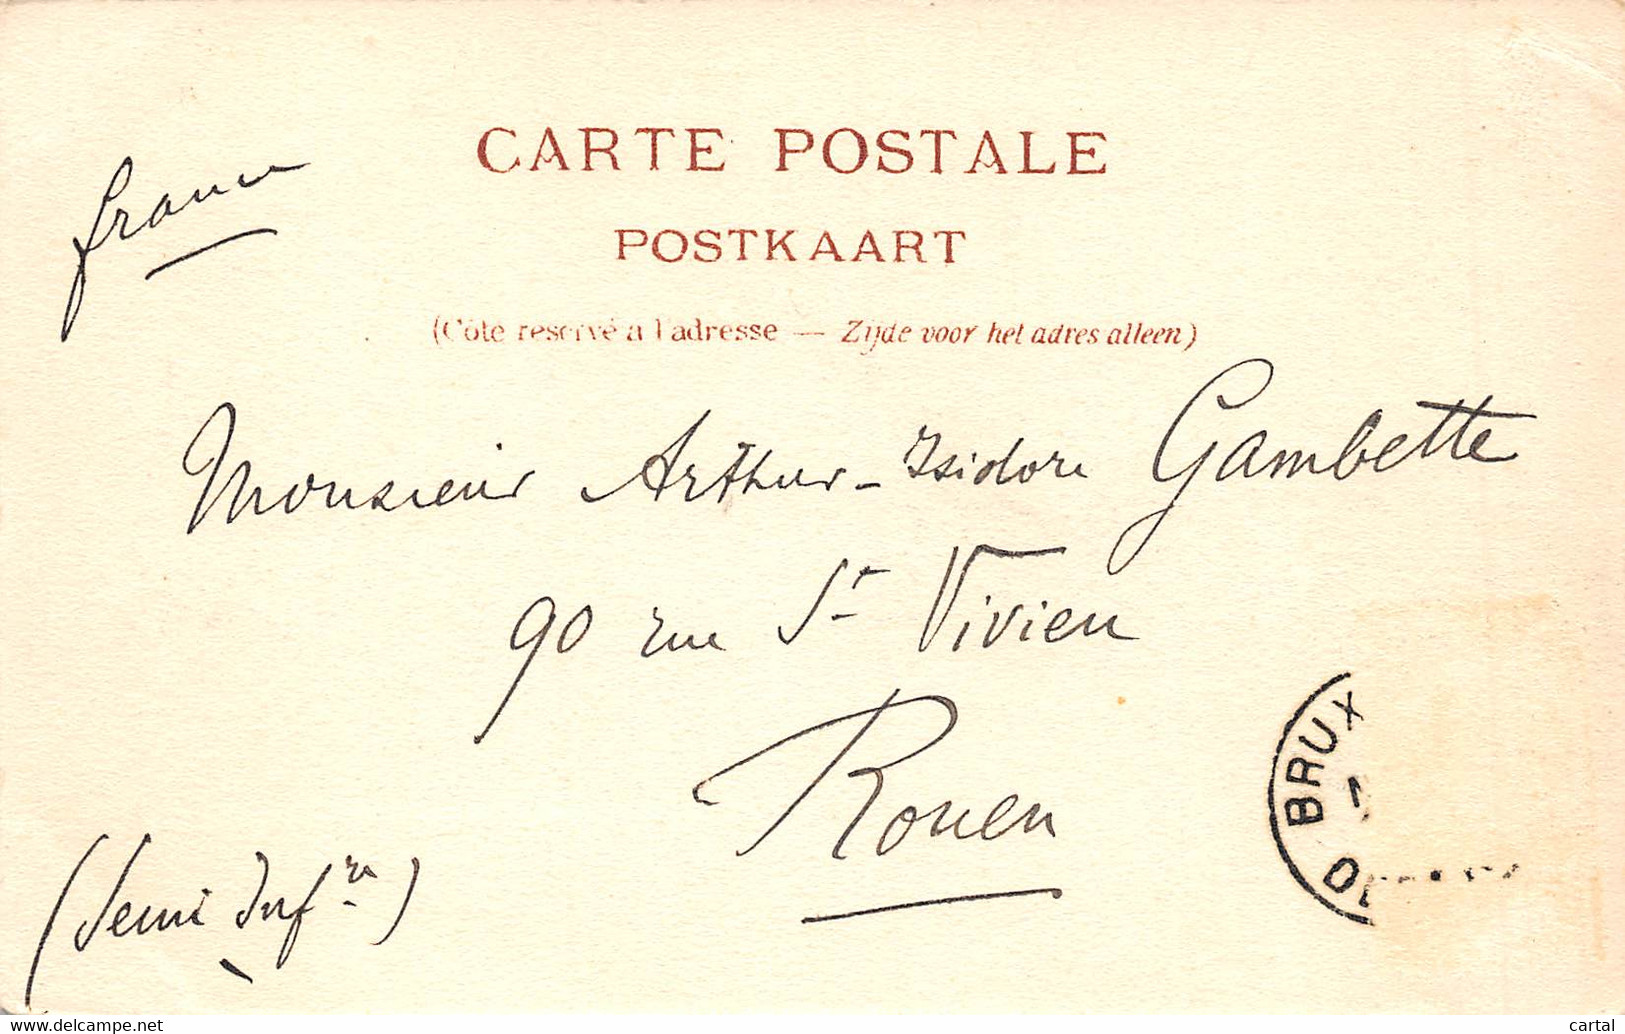 CARTE POSTALE
france
POSTKAART
(Côté réservé à l'adresse — Zijde voor het adres alleen)
Monsieur Arthur-Isidore Gambette
90 rue St Vivien
Rouen
(Seine Infre)
BRUX
www.delcampe.net
cartal